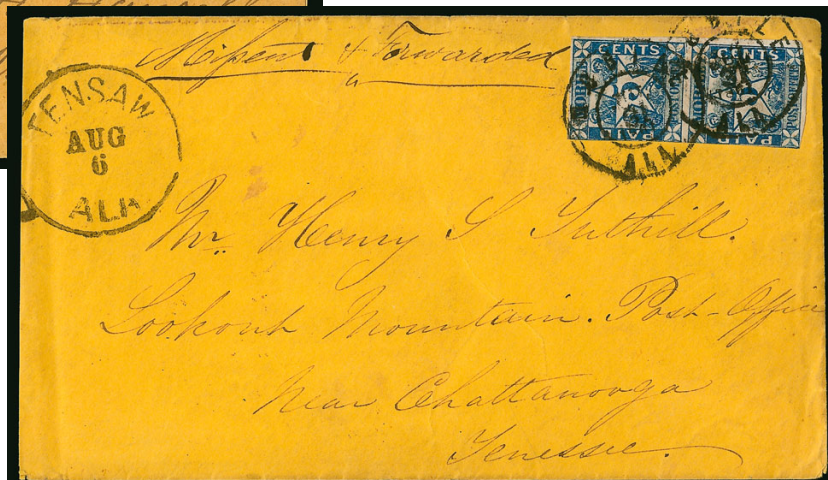 Missent & Forwarded
TENSAW
AUG
6
ALA
CENTS CENTS
5 5
PAID PAID
MOBILE
ALA
ALA
Mr. Henry S Tuthill.
Lookout Mountain. Post-Office
Near Chattanooga
Tenessee.